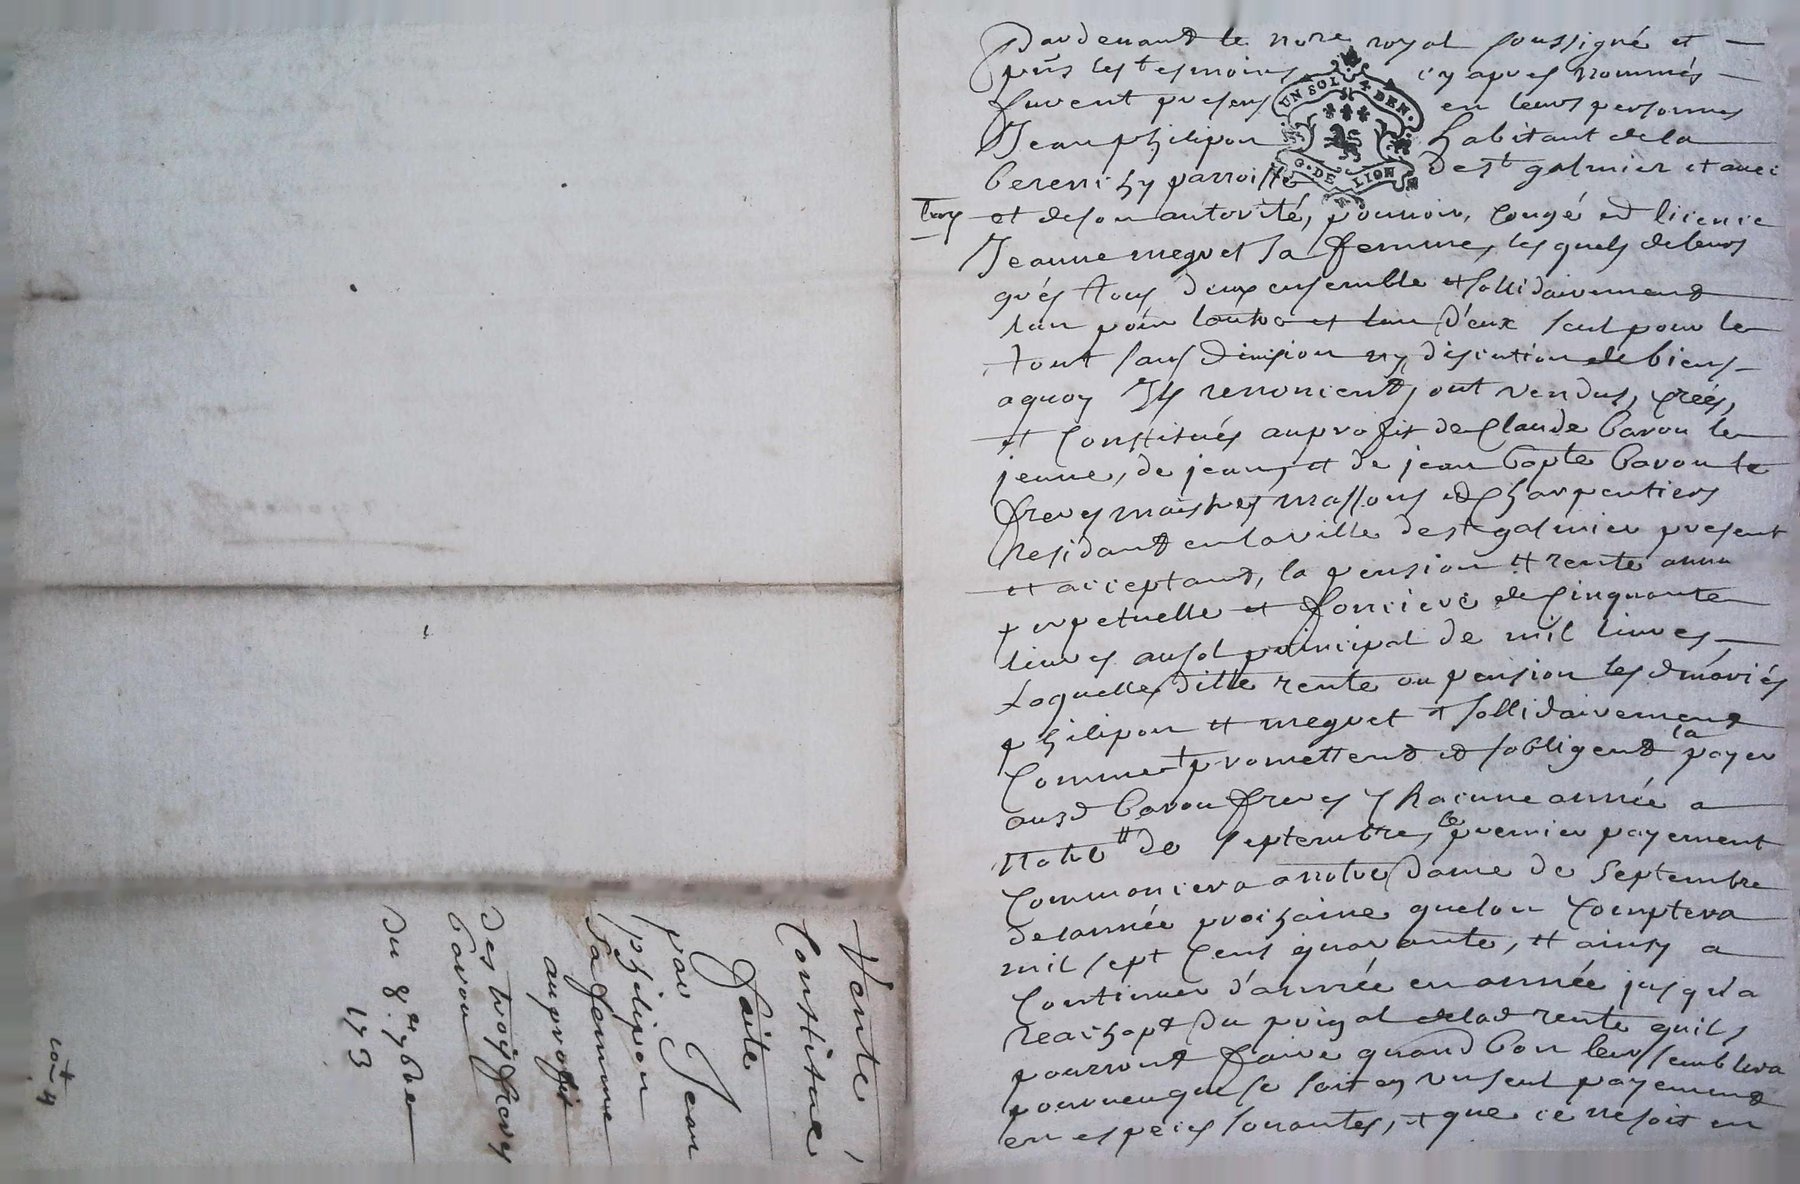 Pardevant le no.re royal soussigné et
pñs les tesmoins cy apres nommés
furent presens en leurs personnes
UN SOL 4 DEN.
G. DE LION
Jean philipon habitant de la
parroisse de st galmier et avec
troy
et de son autorité, pouvoir, congé et licence
Jeanne meguet sa femme, lesquels de leurs
grés tous deux ensemble et sollidairement
lun pour lautre et lun d'eux seul pour le
tout sans division ny discution de biens
aquoy Ils renoncient, ont vendus, créés,
et constitués au profit de Claude Baron le
jeune, de jean, et de jean bapte Baron
freres maistres massons et charpentiers
residant en la ville de st galmier present
et acceptant, la pension et rente annu
perpetuelle et fonciere de Cinquante
livres au sol principal de mil livres
Laquelle ditte rente ou pension les d mariés
philipon et meguet sollidairement
comme promettent et sobligent la payer
ausd Baron freres chacune année a
notre de septembre, le premier payement
commancera a notre Dame de Septembre
de lannée prochaine quelon comptera
mil sept cens quarante, et ainsy a
continuer d'année en année jusqu'a
reachapt du prinpal de lad rente quils
pourront faire quand bon leur semblera
pourveu que se soit en un seul payement
en especes sonantes, et que ce ne soit en
Vente
Constitue
faite
par Jean
philipon
sa femme
au profit
des troy freres
baron
du 8.e 9bre
173
cot 4